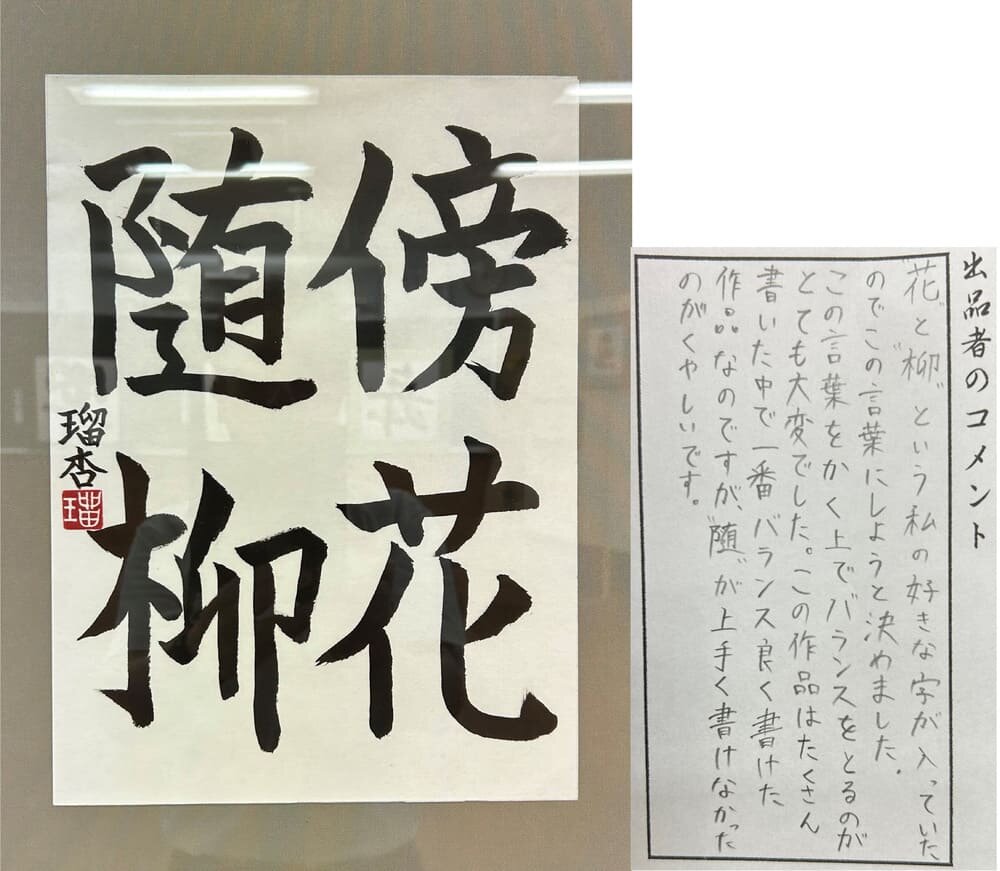 傍花
随柳
瑠杏
出品者のコメント
"花"と"柳"という私の好きな字が入っていた
のでこの言葉にしようと決めました。
この言葉をかく上でバランスをとるのが
とても大変でした。この作品はたくさん
書いた中で一番バランス良く書けた
作品なのですが、"随"が上手く書けなかった
のがくやしいです。